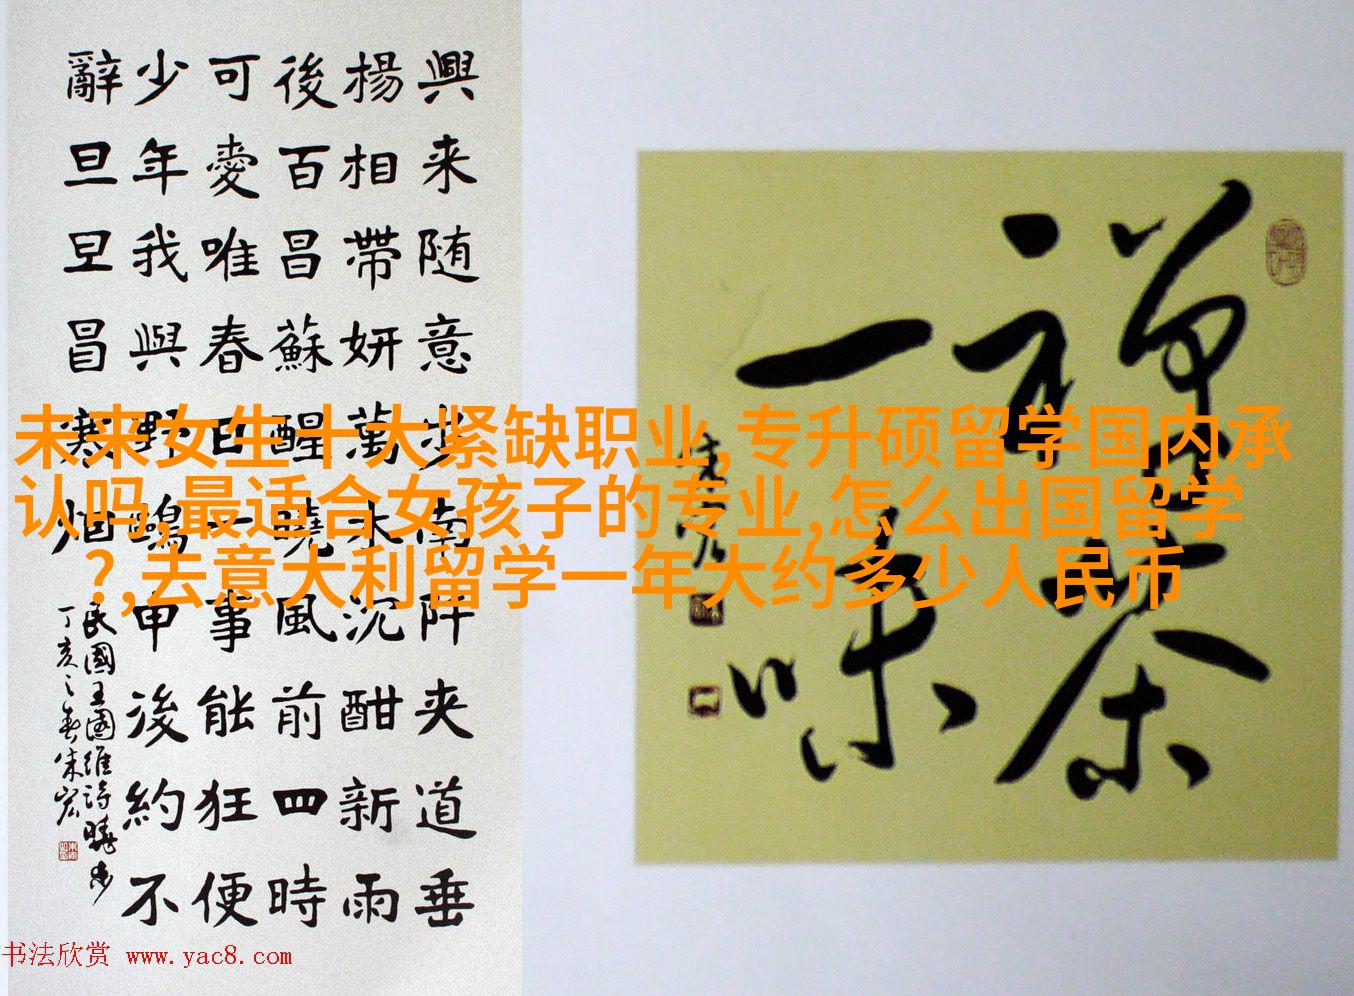 興来随意步南阡夹道垂
楊相帶妍萬木沉酣新雨
後百昌蘇醒曉風前四時
可愛唯春日一事能狂便
少年我與野鷗申後約不
辭旦旦昌寒烟
民國王國維詩曉步
丁亥之春朱宏
禅茶
一味
朱宏
未来女生十大紧缺职业,专升硕留学国内承
认吗,最适合女孩子的专业,怎么出国留学
?,去意大利留学一年大约多少人民币
书法欣赏 www.yac8.com